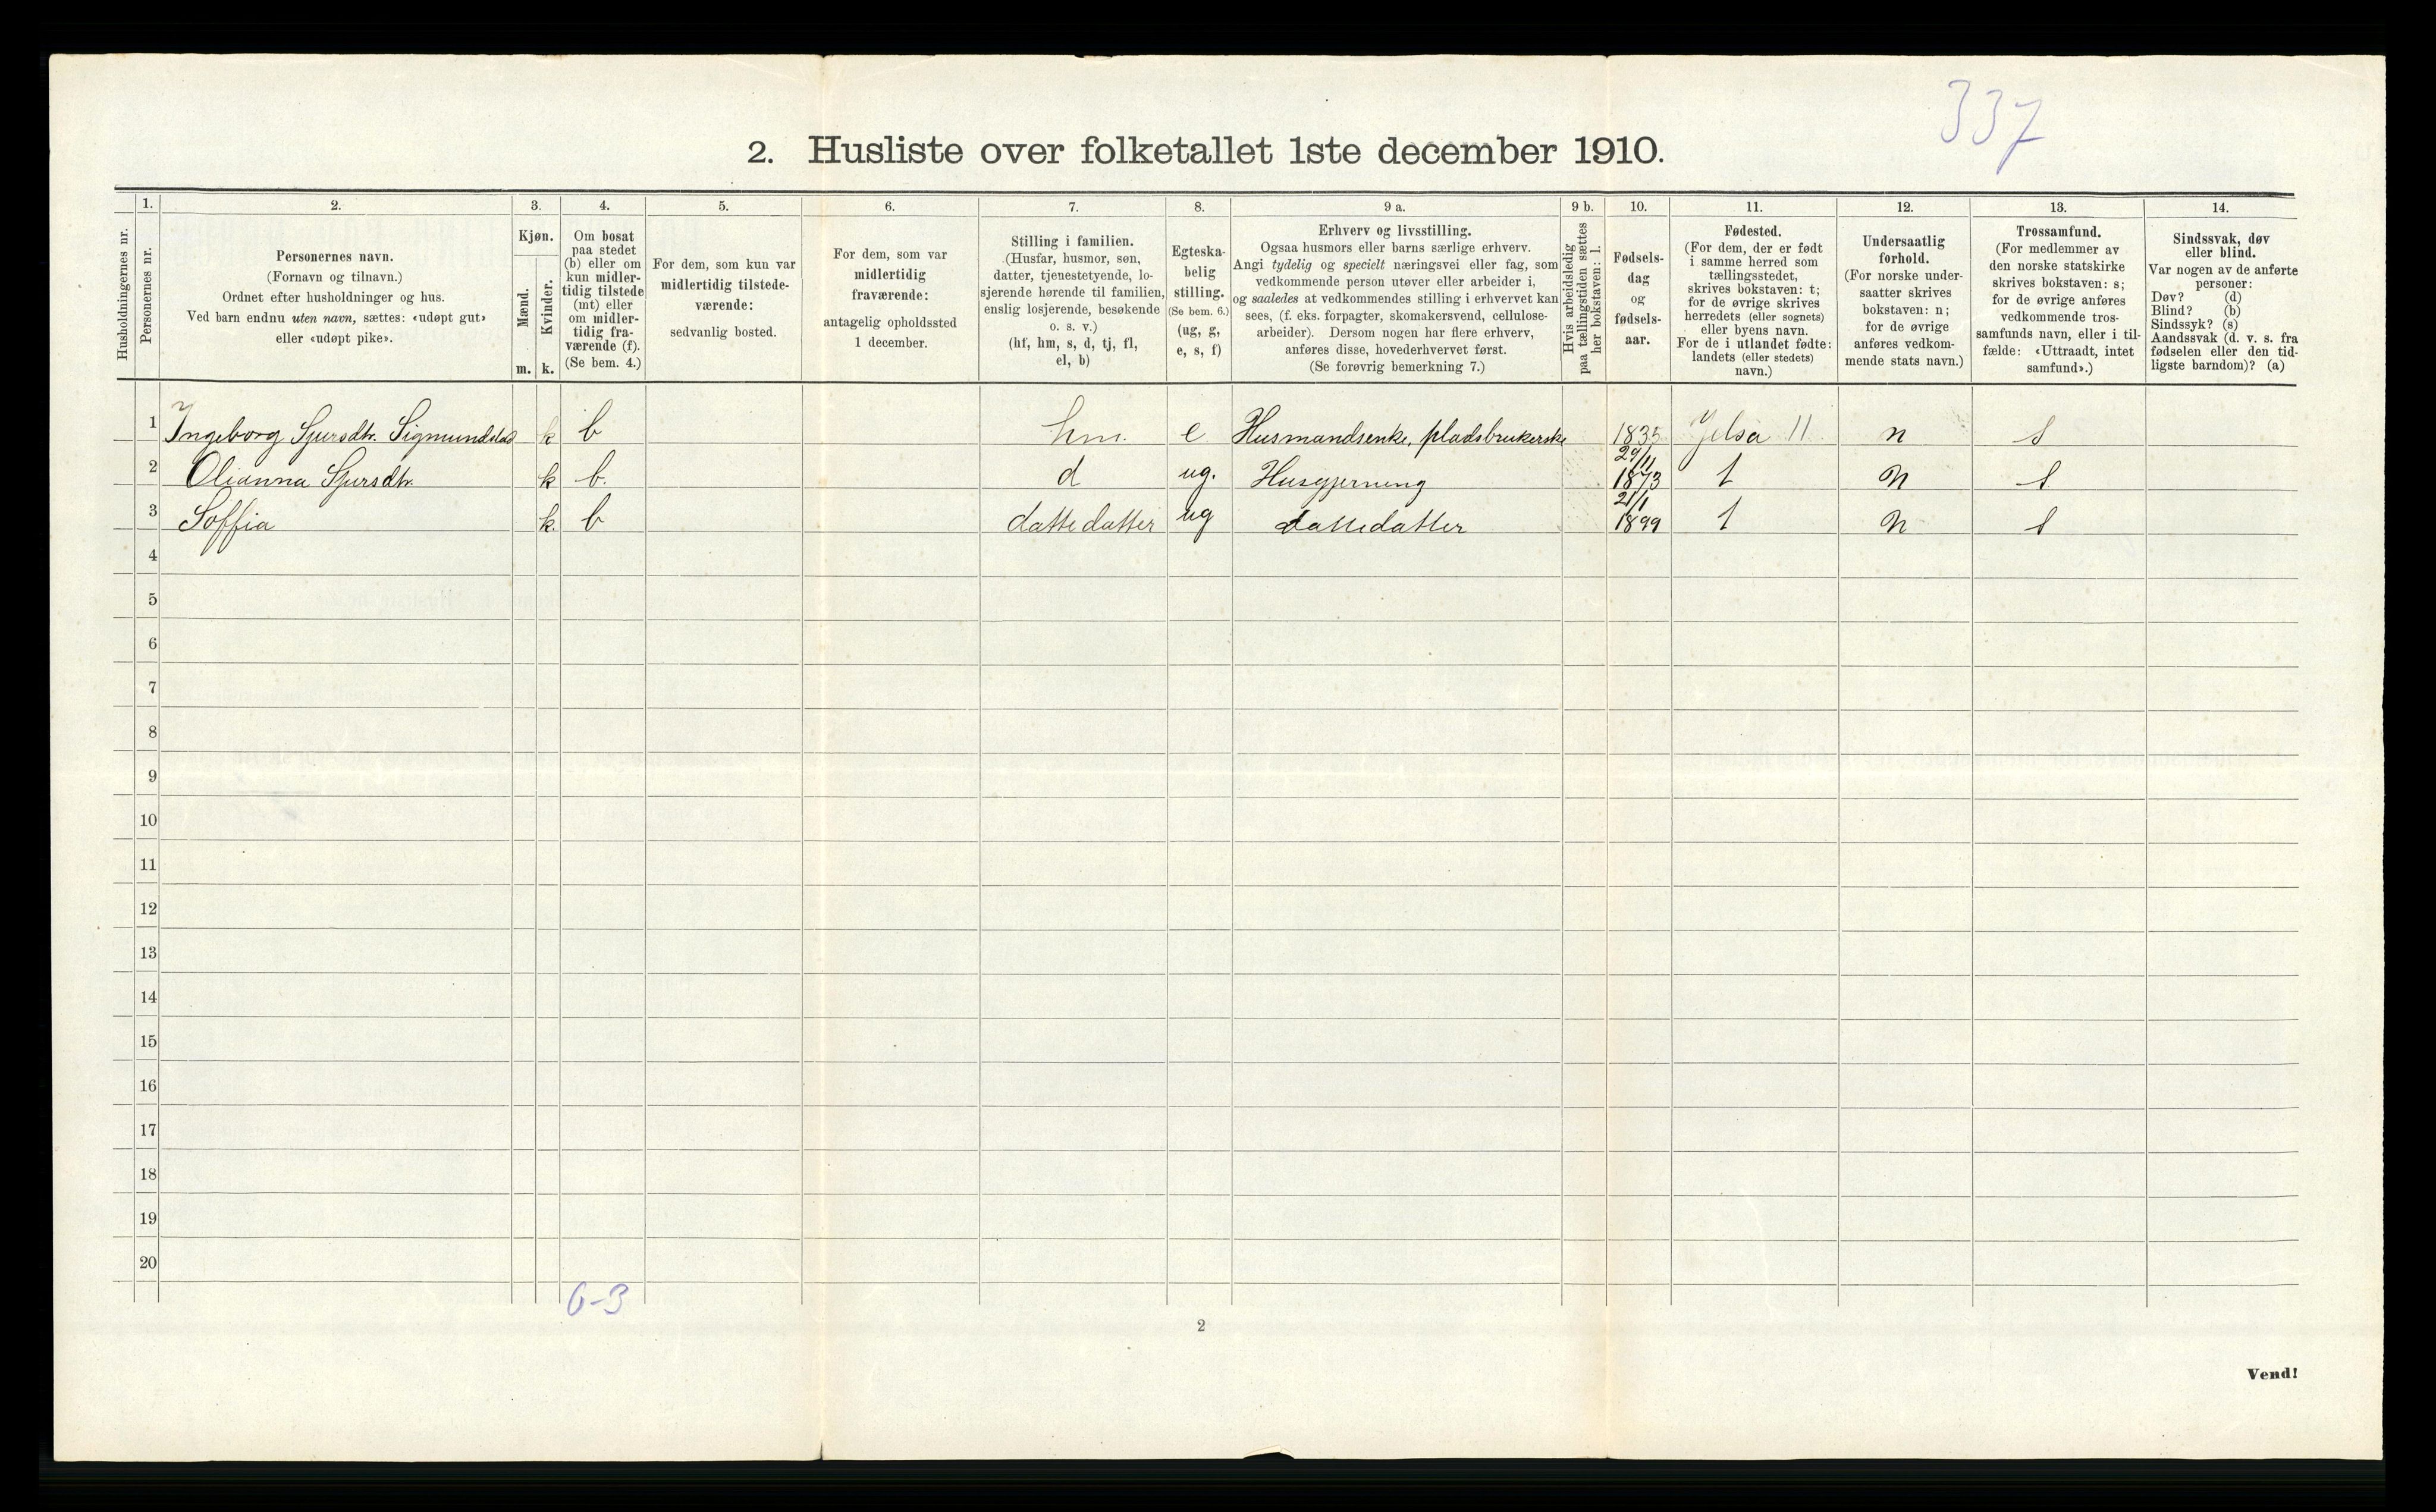 337
2. Husliste over folketallet 1ste december 1910.
Husholdningernes nr.
1.
Personernes nr.
2.
Personernes navn.
(Fornavn og tilnavn.)
Ordnet efter husholdninger og hus.
Ved barn endnu uten navn, sættes: «udøpt gut»
eller «udøpt pike».
3.
Kjøn.
Mænd.
Kvinder.
m. k.
4.
Om bosat
paa stedet
(b) eller om
kun midler-
tidig tilstede
(mt) eller
om midler-
tidig fra-
værende (f).
(Se bem. 4.)
5.
For dem, som kun var
midlertidig tilstede-
værende:
sedvanlig bosted.
6.
For dem, som var
midlertidig
fraværende:
antagelig opholdssted
1 december.
7.
Stilling i familien.
(Husfar, husmor, søn,
datter, tjenestetyende, lo-
sjerende hørende til familien,
enslig losjerende, besøkende
o. s. v.)
(hf, hm, s, d, tj, fl,
el, b)
8.
Egteska-
belig
stilling.
(Se bem. 6.)
(ug, g,
e, s, f)
9 a.
Erhverv og livsstilling.
Ogsaa husmors eller barns særlige erhverv.
Angi tydelig og specielt næringsvei eller fag, som
vedkommende person utøver eller arbeider i,
og saaledes at vedkommendes stilling i erhvervet kan
sees, (f. eks. forpagter, skomakersvend, cellulose-
arbeider). Dersom nogen har flere erhverv,
anføres disse, hovederhvervet først.
(Se forøvrig bemerkning 7.)
9 b.
Hvis arbeidsledig
paa tællingstiden sættes
her bokstaven: l.
10.
Fødsels-
dag
og
fødsels-
aar.
11.
Fødested.
(For dem, der er født
i samme herred som
tællingsstedet,
skrives bokstaven: t;
for de øvrige skrives
herredets (eller sognets)
eller byens navn.
For de i utlandet fødte:
landets (eller stedets)
navn.)
12.
Undersaatlig
forhold.
(For norske under-
saatter skrives
bokstaven: n;
for de øvrige
anføres vedkom-
mende stats navn.)
13.
Trossamfund.
(For medlemmer av
den norske statskirke
skrives bokstaven: s;
for de øvrige anføres
vedkommende tros-
samfunds navn, eller i til-
fælde: «Uttraadt, intet
samfund».)
14.
Sindssvak, døv
eller blind.
Var nogen av de anførte
personer:
Døv? (d)
Blind? (b)
Sindssyk? (s)
Aandssvak (d. v. s. fra
fødselen eller den tid-
ligste barndom)? (a)
1 Ingeborg Sjursdtr. Sigmundstad k b hm. e Husmandsenke, pladsbrukerske 1835 Jelsa 11 n s
2 Olianna Sjursdtr. k b. d ug. Husgjerning 29/11 1873 t n s
3 Soffia k. b datte datter ug dattedatter 21/1 1899 t n s
4
5
6
7
8
9
10
11
12
13
14
15
16
17
18
19
20
0-3
2
Vend!